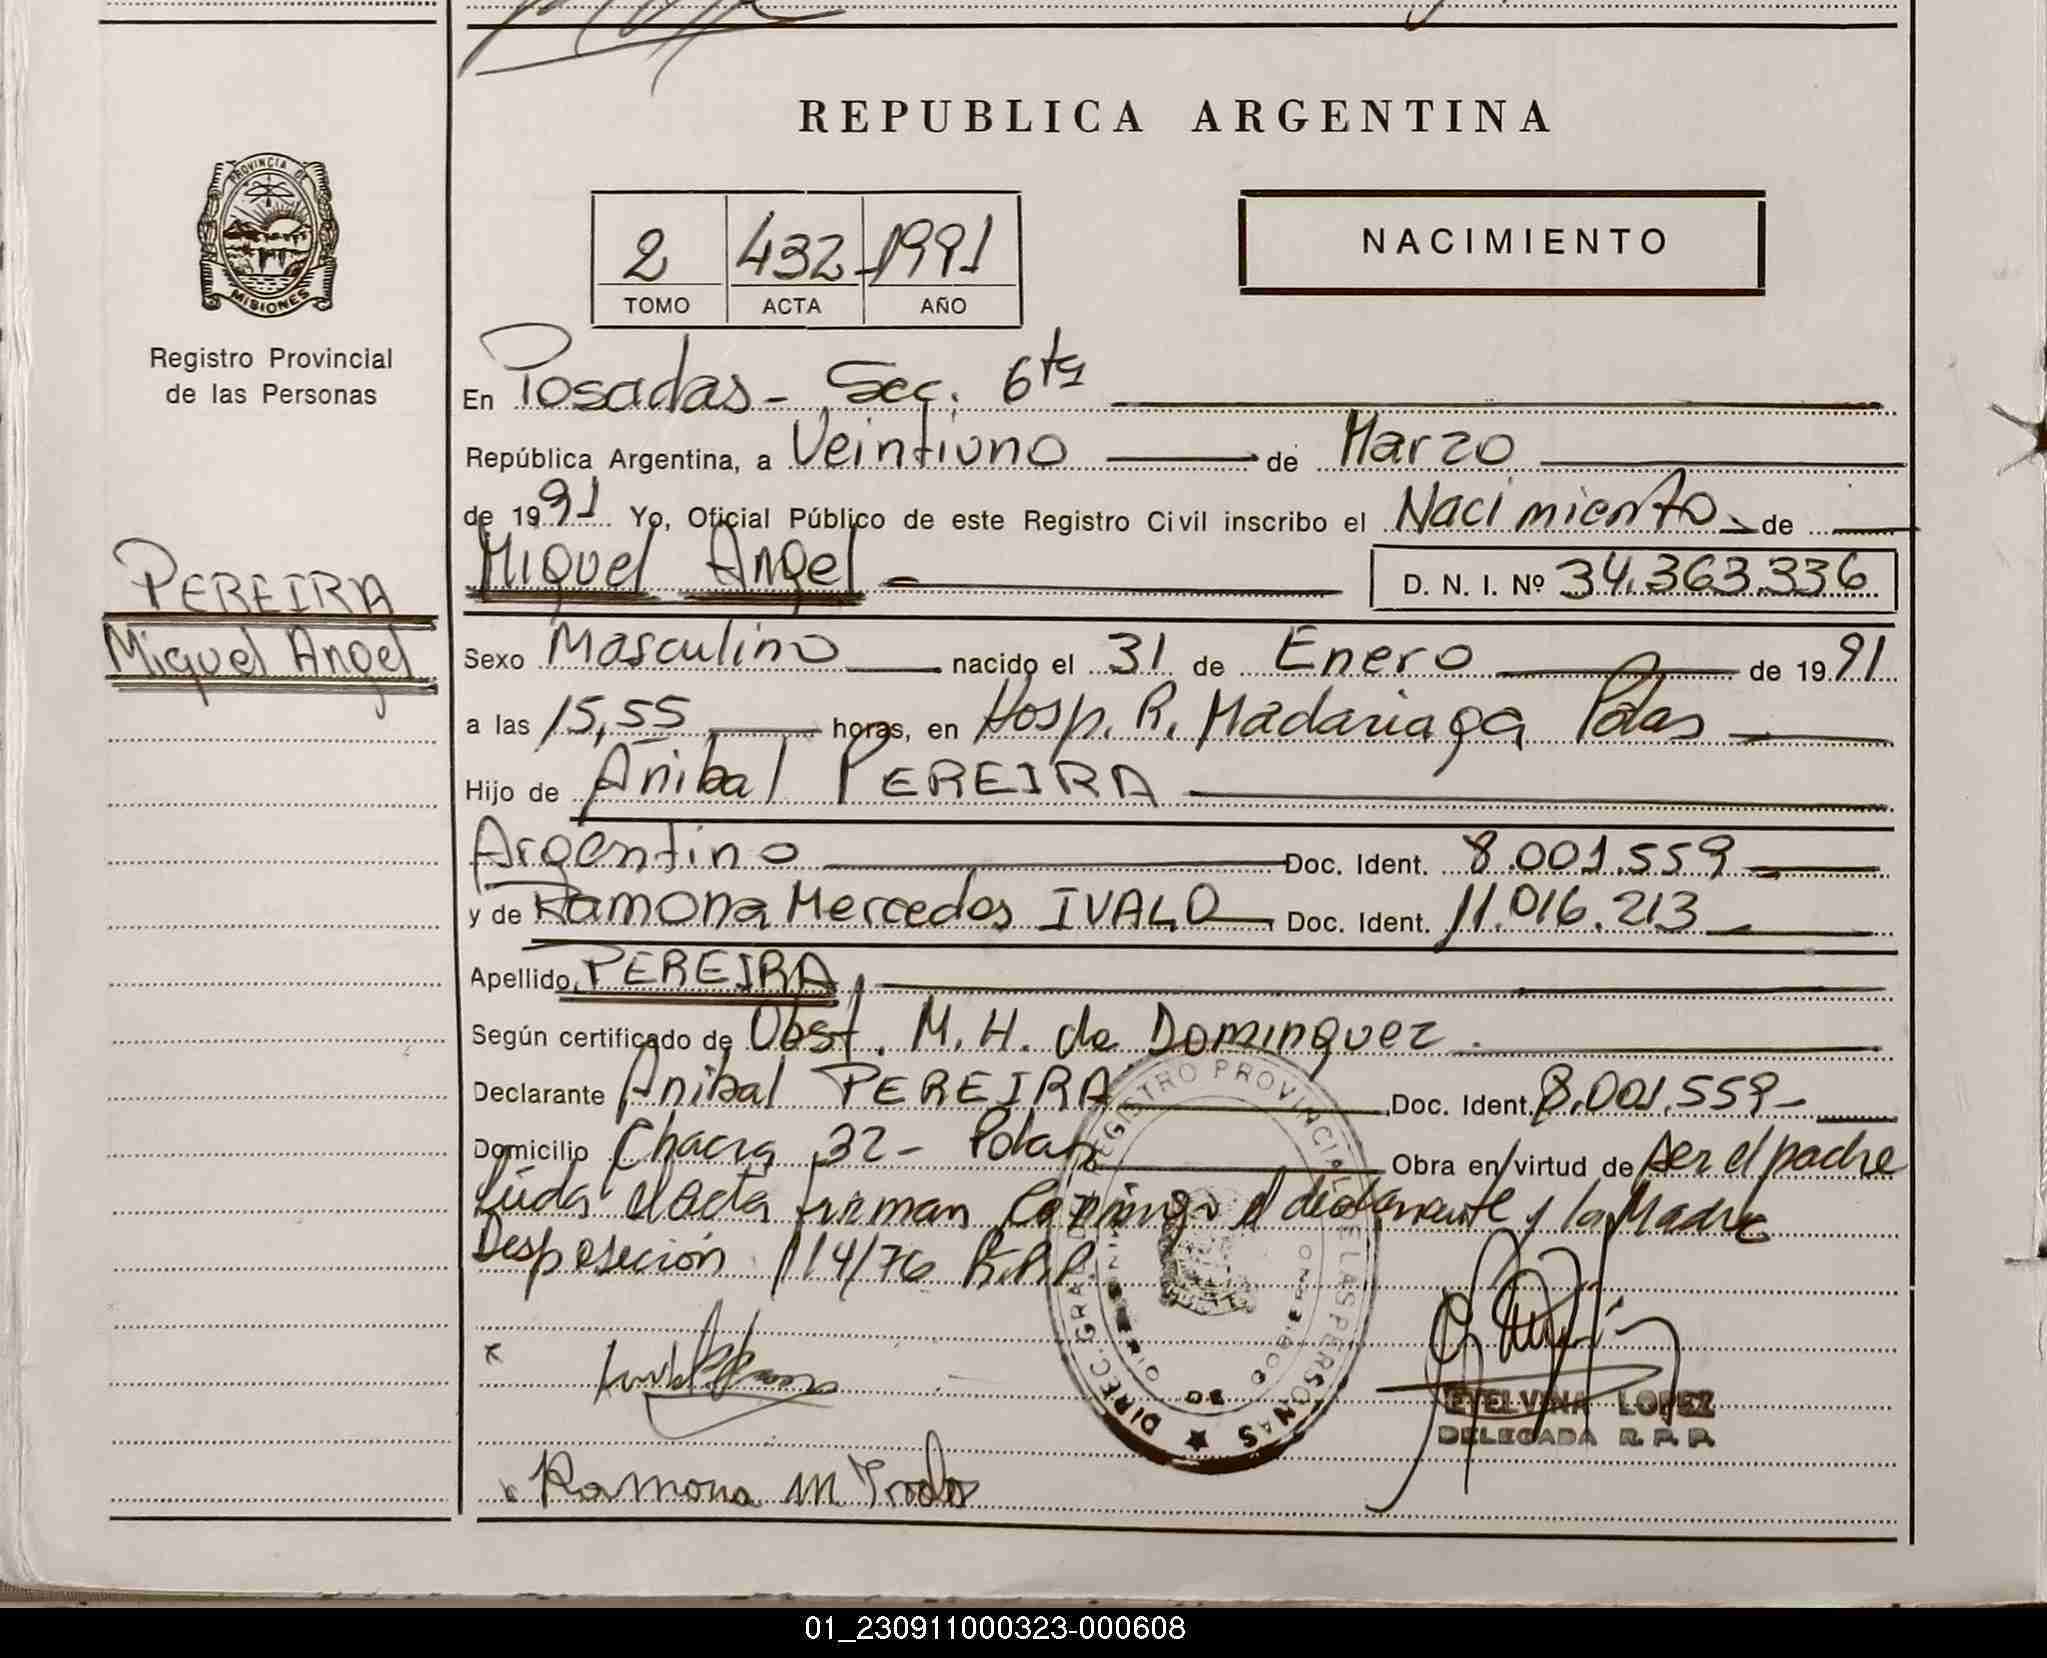 REPUBLICA ARGENTINA
PROVINCIA DE
MISIONES
Registro Provincial
de las Personas
2 432 1991
TOMO ACTA AÑO
NACIMIENTO
En Posadas - Sec. 6ta
República Argentina, a Veintiuno de Marzo
de 1991 Yo, Oficial Público de este Registro Civil inscribo el Nacimiento de
PEREIRA
Miguel Angel
Miguel Angel D. N. I. Nº 34.363.336
Sexo Masculino nacido el 31 de Enero de 1991
a las 15,55 horas, en Hosp. R. Madariaga Pdas
Hijo de Anibal PEREIRA
Argentino Doc. Ident. 8.001.559
y de Ramona Mercedes Doc. Ident. 11.016.213
Apellido PEREIRA
Según certificado de Obst. M. H. de Dominguez
Declarante Anibal PEREIRA Doc. Ident. 8.001.559-
Domicilio Chacra 32 - Pdas Obra en virtud de ser el padre
el acta firman el declarante y la Madre
114/76 R.P.P.
DIREC. GRAL. DEL REGISTRO PROVINCIAL DE LAS PERSONAS
ETELVINA LOPEZ
DELEGADA R. P. P.
x
Ramona M
01_230911000323-000608